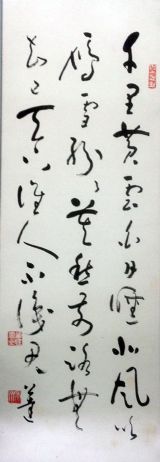 千里黄雲白日曛北風吹
雁雪紛々莫愁前路無
知己天下誰人不識君